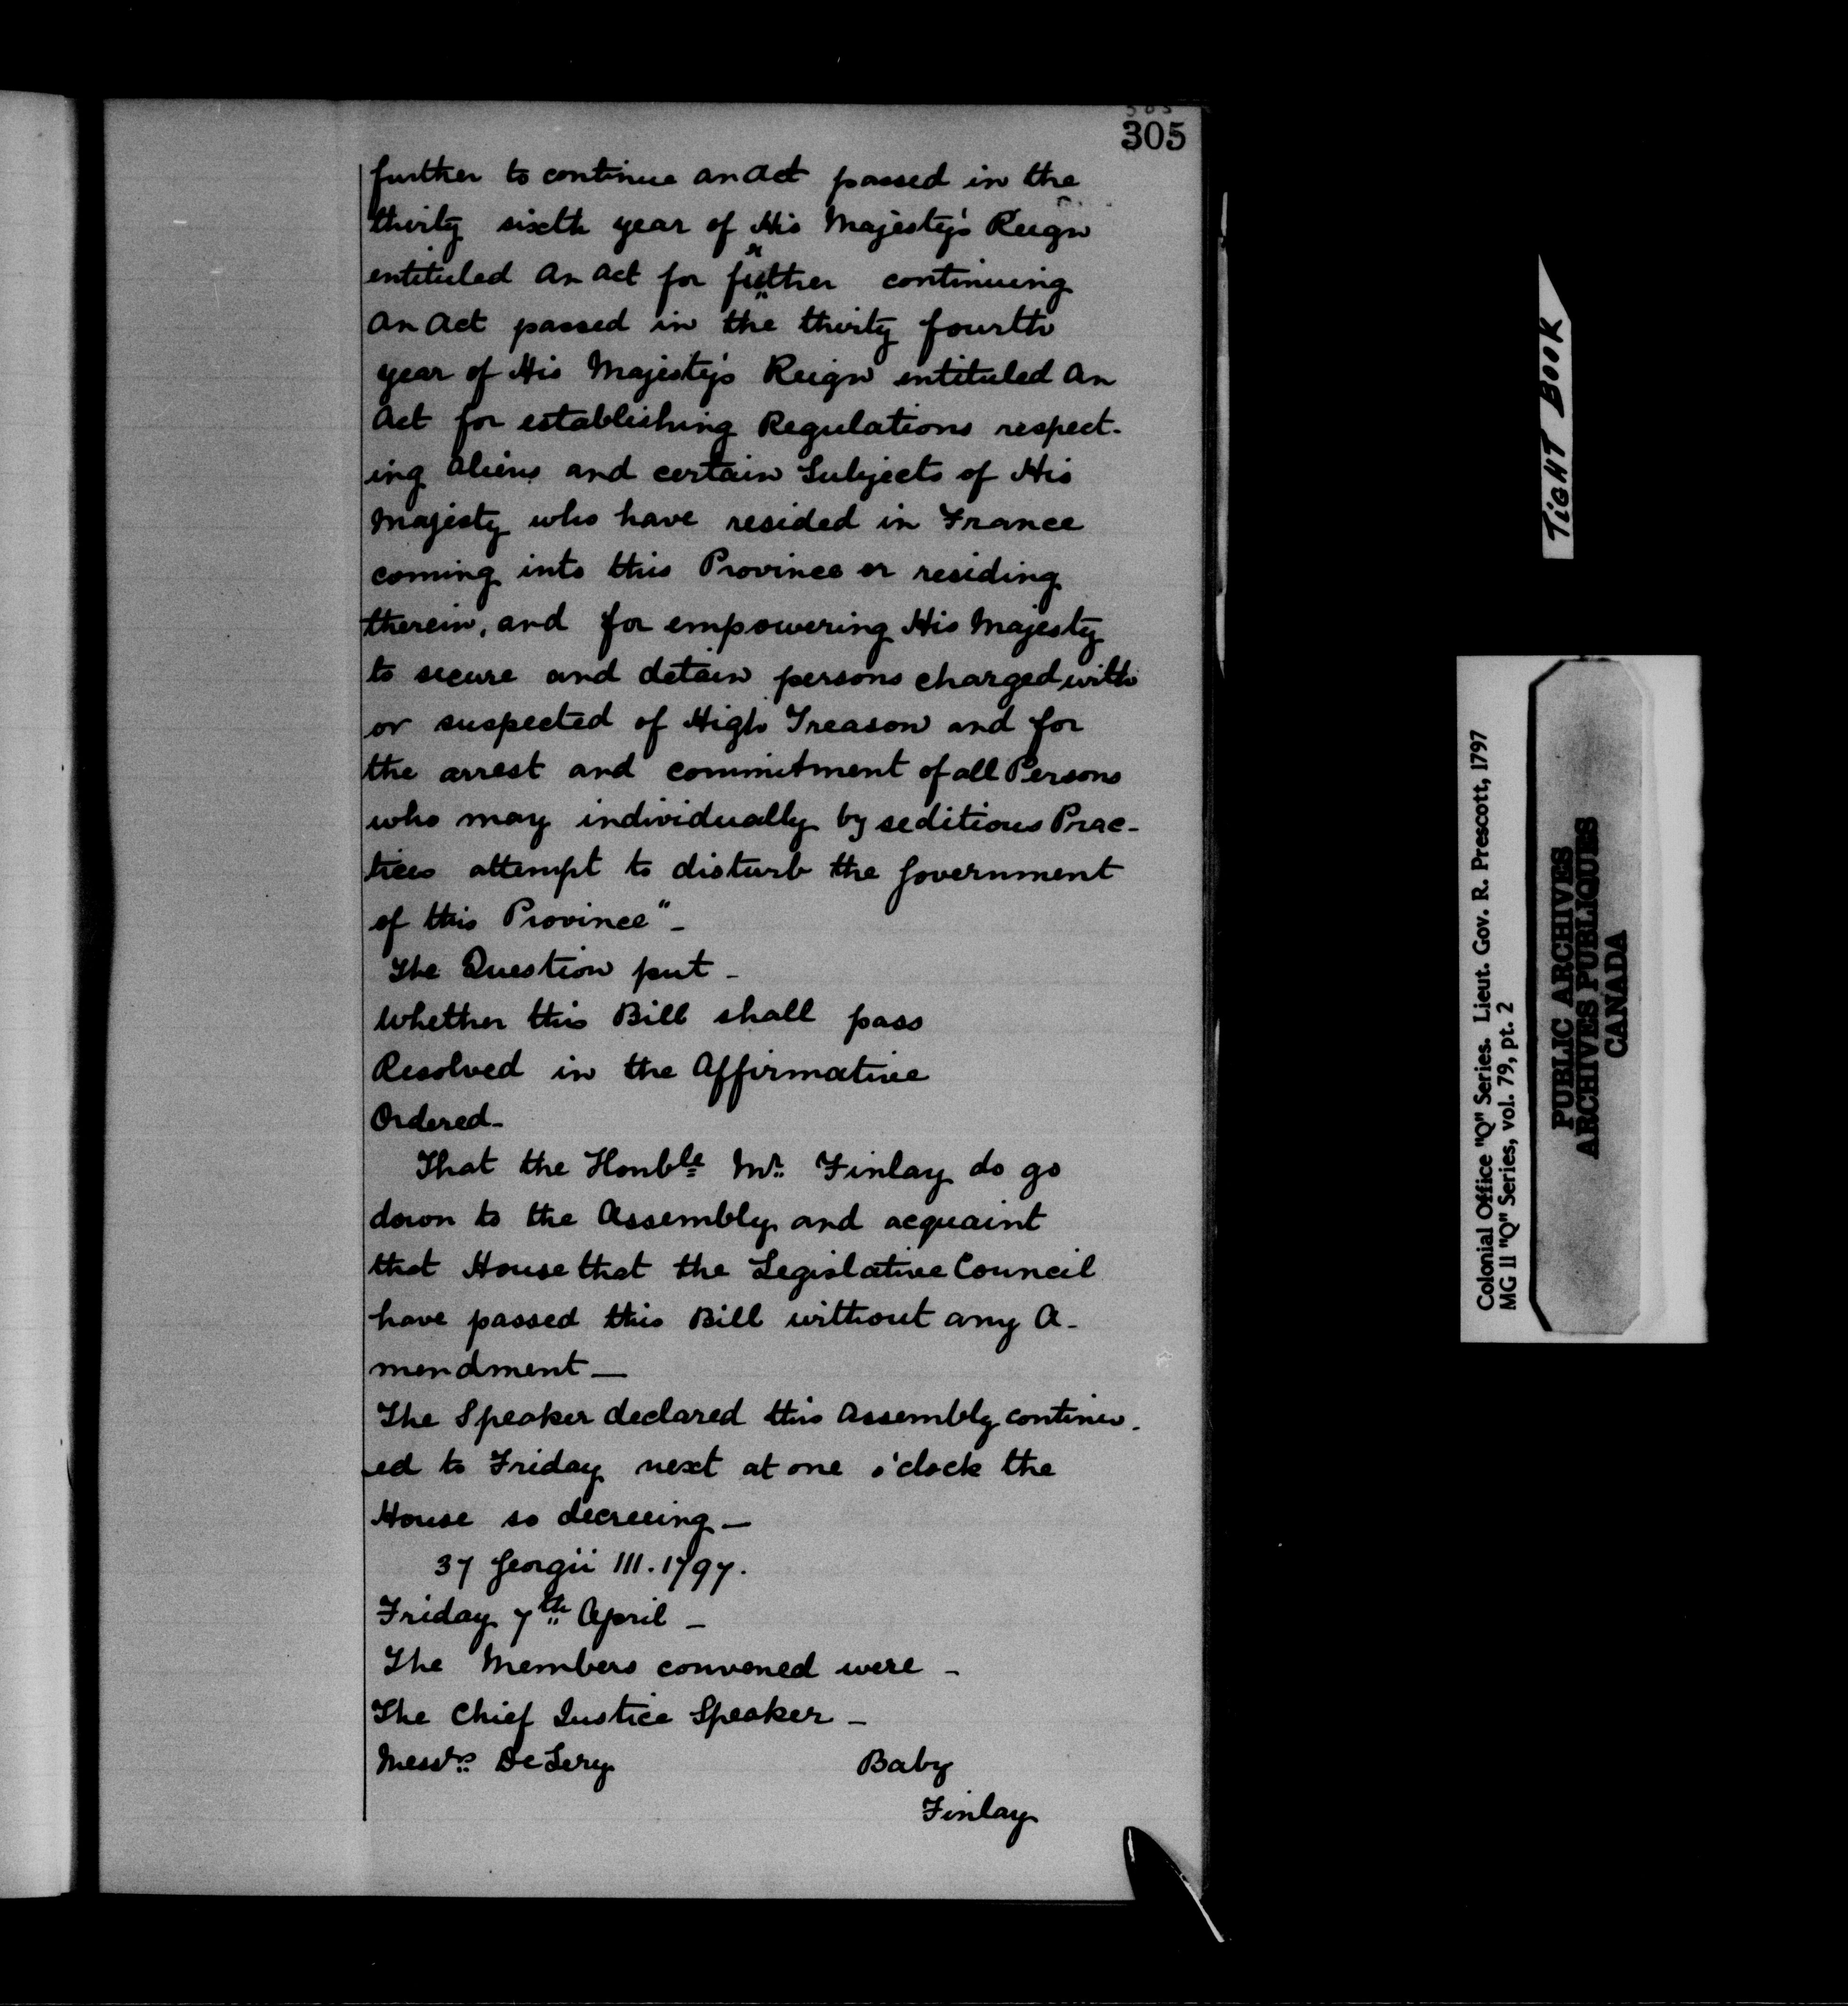 305
further to continue an Act passed in the
thirty sixth year of His Majesty's Reign
entituled An Act for further continuing
An Act passed in the thirty fourth
year of His Majesty's Reign entituled An
Act for establishing Regulations respect-
ing Aliens and certain Subjects of His
Majesty who have resided in France
coming into this Province or residing
therein, and for empowering His Majesty
to secure and detain persons charged with
or suspected of High Treason and for
the arrest and commitment of all Persons
who may individually by seditious Prac-
tices attempt to disturb the Government
of this Province" -
The Question put -
Whether this Bill shall pass
Resolved in the Affirmative
Ordered -
That the Honble Mr. Finlay do go
down to the Assembly and acquaint
that House that the Legislative Council
have passed this Bill without any A-
mendment -
The Speaker declared this Assembly continu-
ed to Friday next at one o'clock the
House so decreeing -
37 Georgii III. 1797.
Friday 7th April -
The Members convened were -
The Chief Justice Speaker -
Messrs. De Lery Baby
Finlay
TIGHT BOOK
Colonial Office "Q" Series. Lieut. Gov. R. Prescott, 1797
MG 11 "Q" Series, vol. 79, pt. 2
PUBLIC ARCHIVES
ARCHIVES PUBLIQUES
CANADA